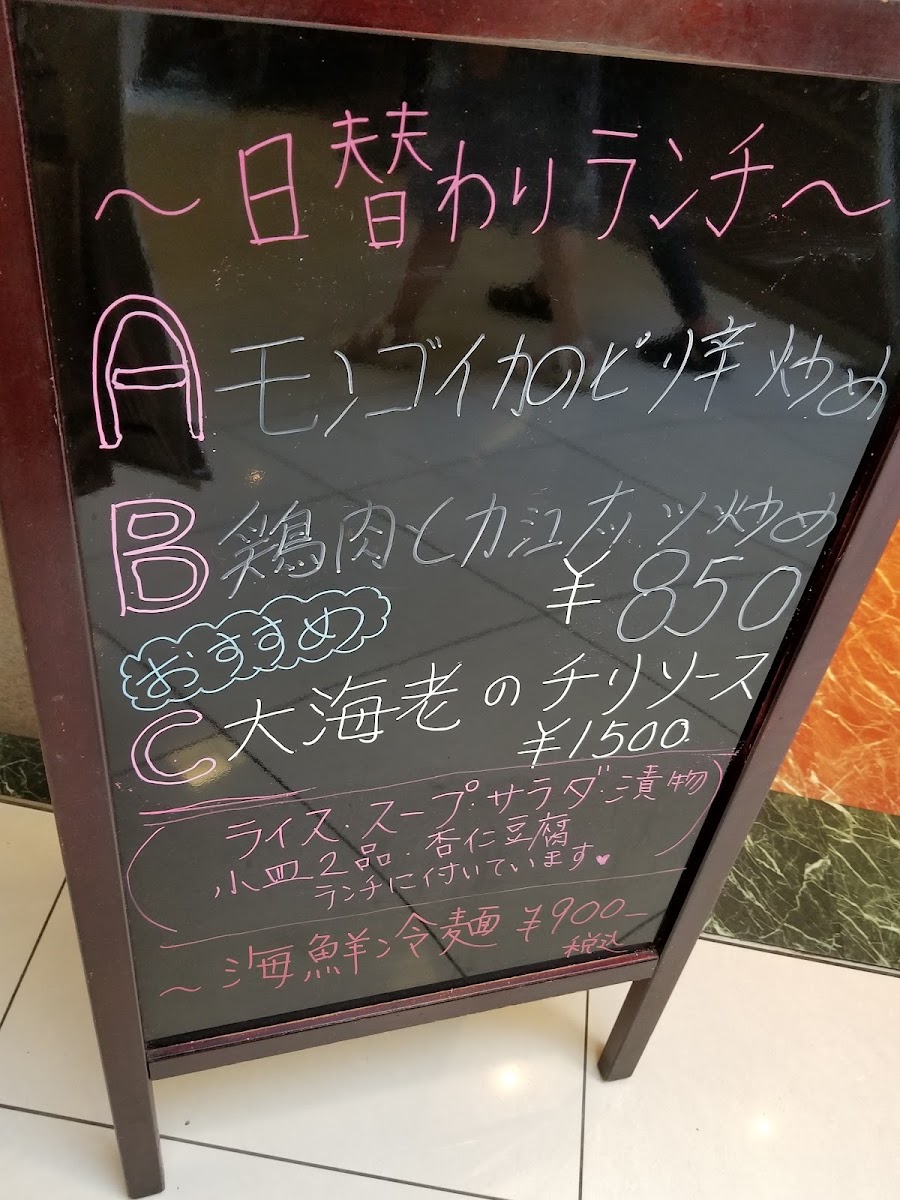 ～日替わりランチ～
A モンゴイカのピリ辛炒め
B 鶏肉とカシュナッツ炒め
¥850
おすすめ
C 大海老のチリソース
¥1500
ライス・スープ・サラダ・漬物
小皿2品・杏仁豆腐
ランチに付いています♥
～海鮮冷麺 ¥900-
税込